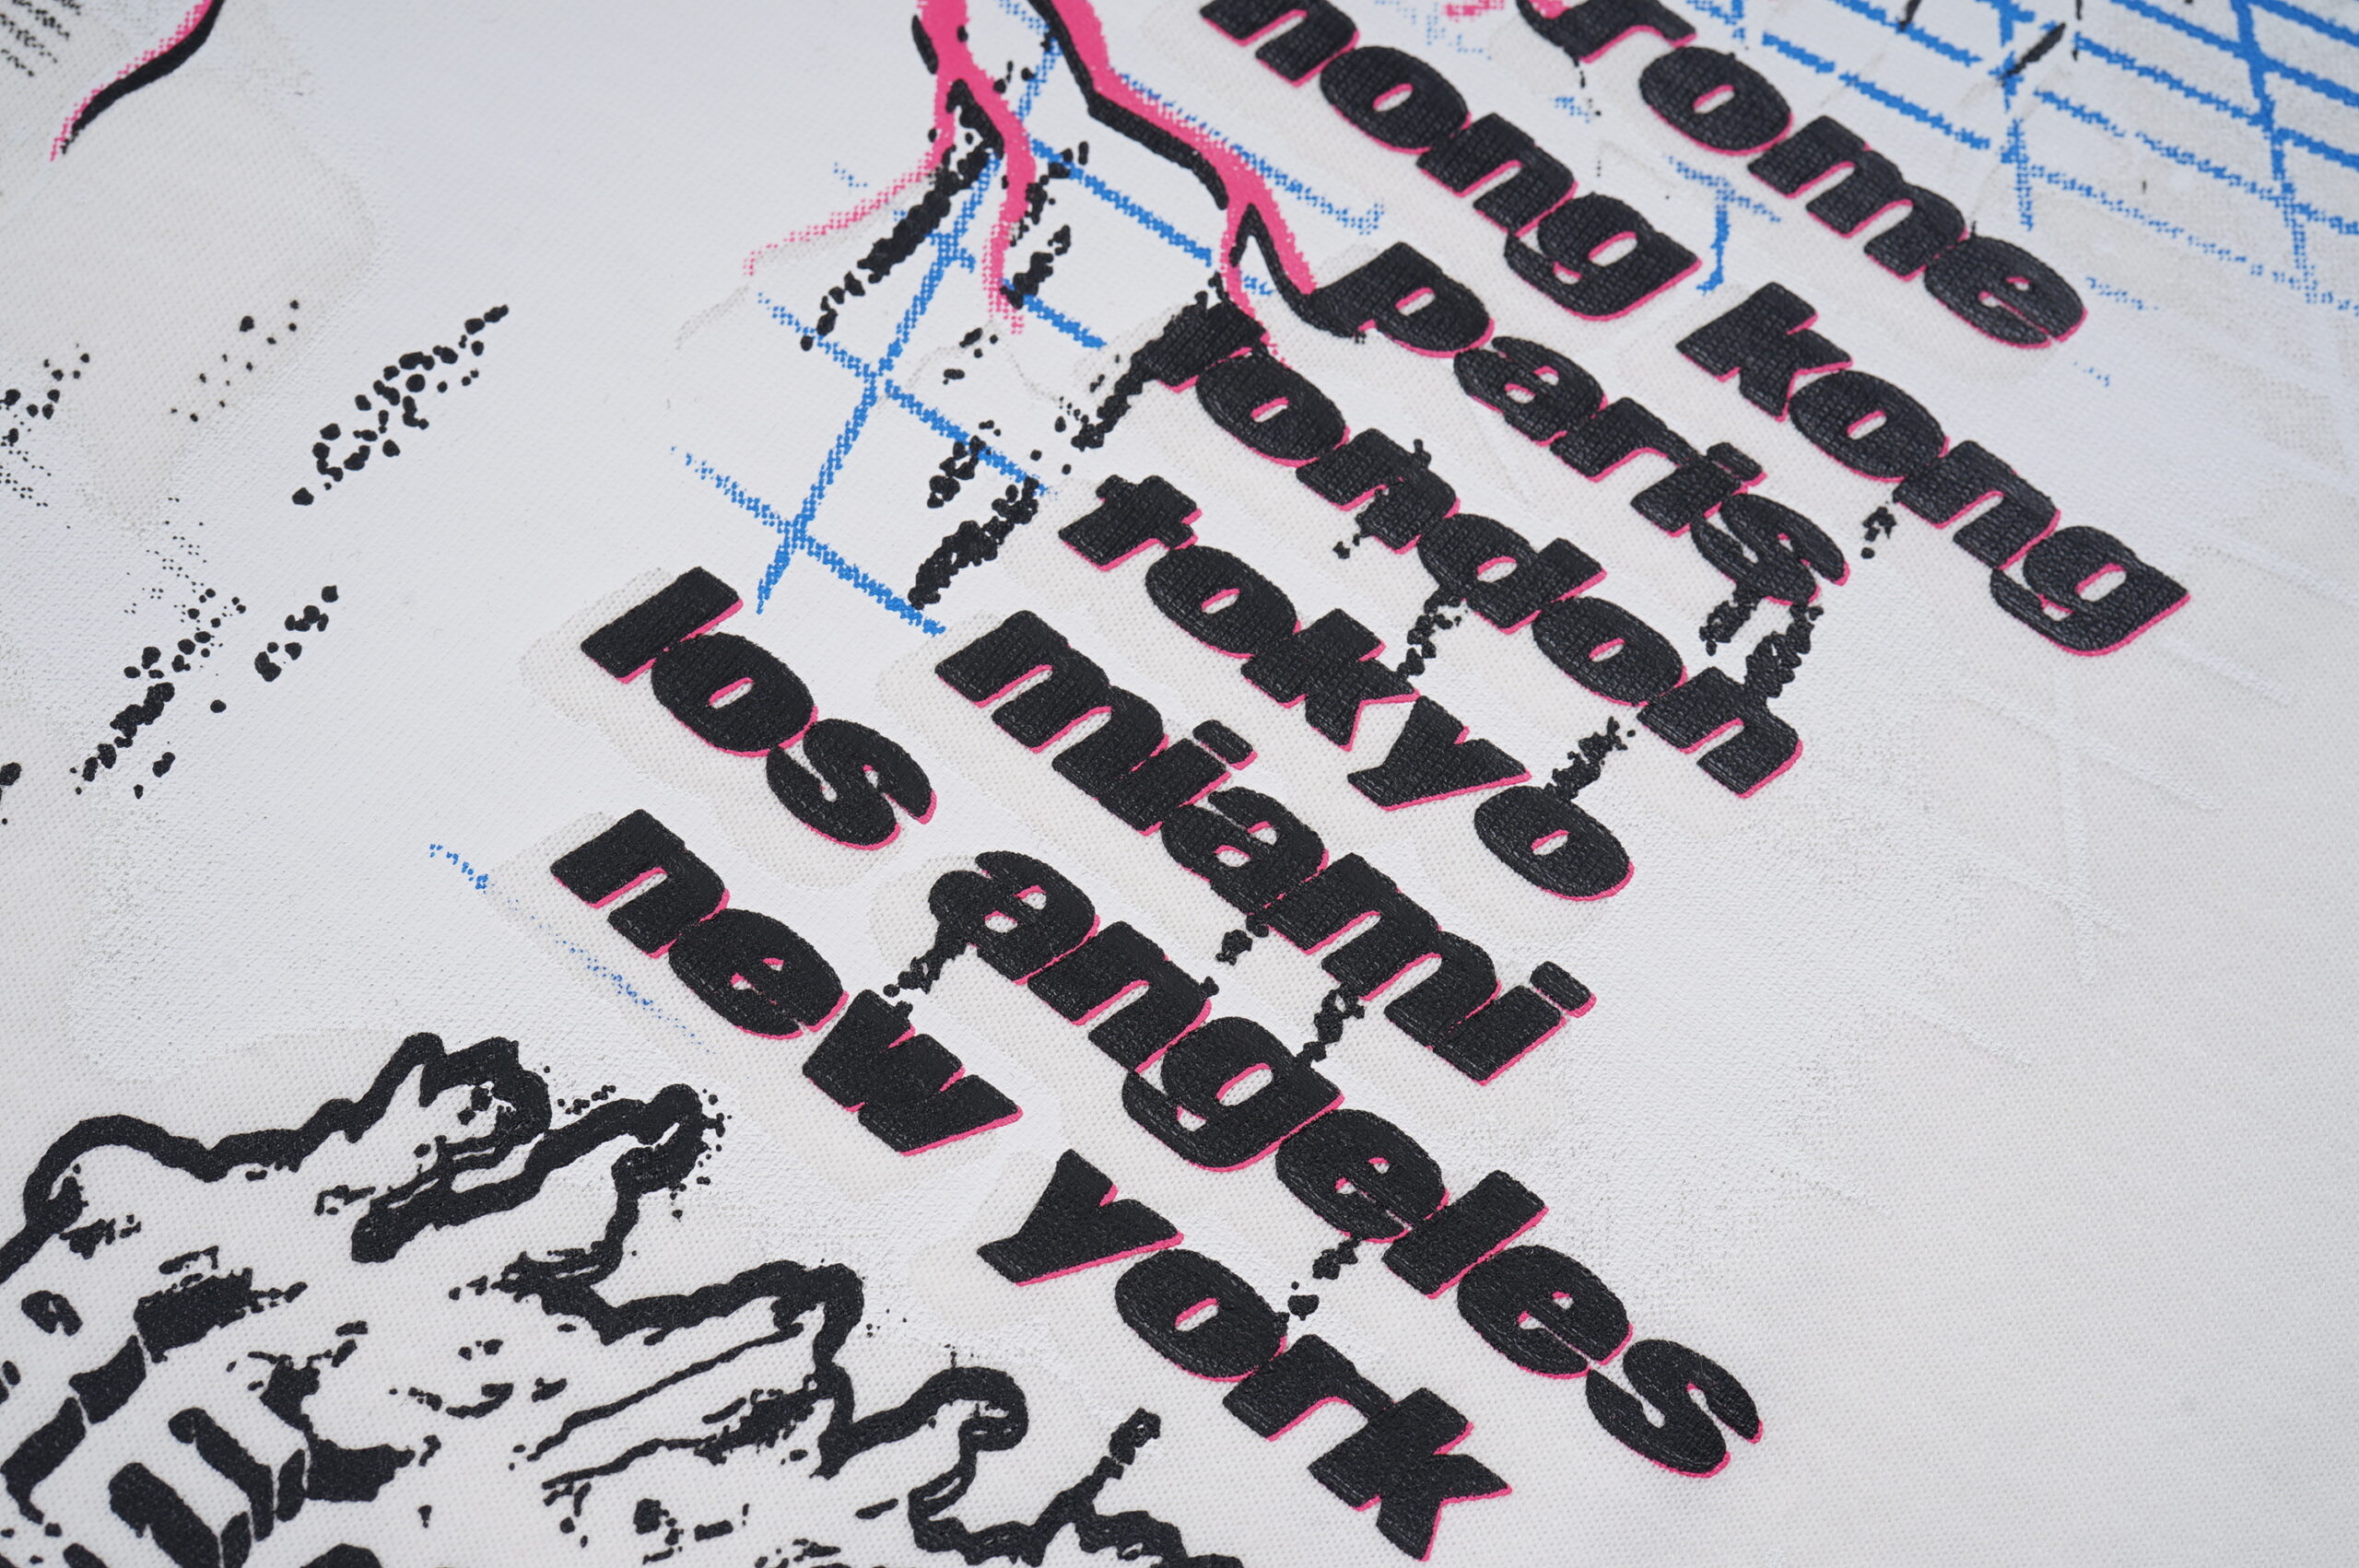 rome
hong kong
paris
london
tokyo
miami
los angeles
new york